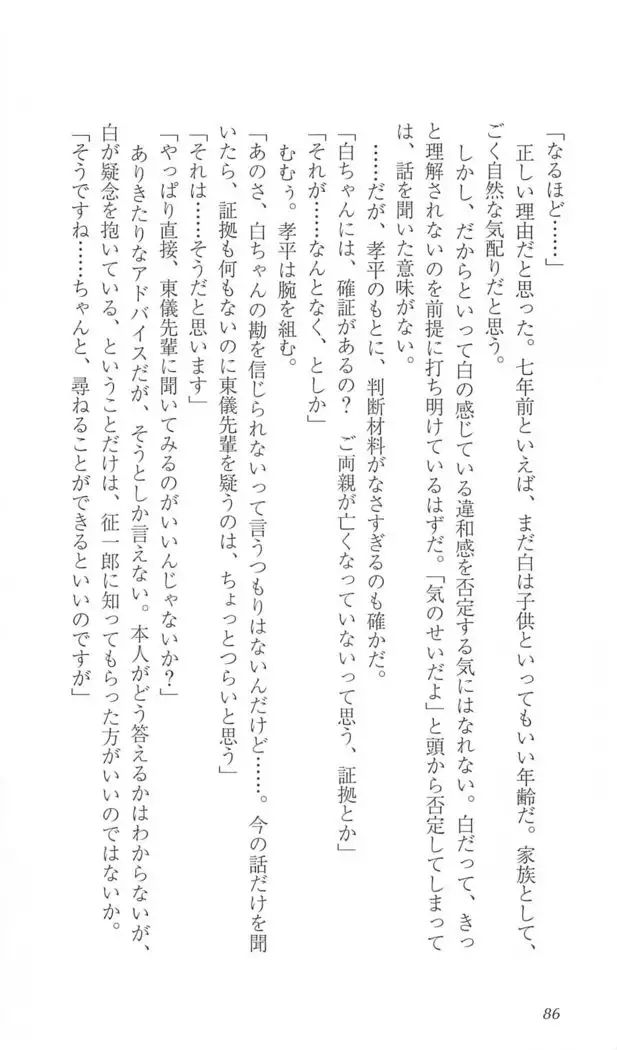 「なるほど……」
　正しい理由だと思った。七年前といえば、まだ白は子供といってもいい年齢だ。家族として、
ごく自然な気配りだと思う。
　しかし、だからといって白の感じている違和感を否定する気にはなれない。白だって、きっ
と理解されないのを前提に打ち明けているはずだ。「気のせいだよ」と頭から否定してしまって
は、話を聞いた意味がない。
　……だが、孝平のもとに、判断材料がなさすぎるのも確かだ。
「白ちゃんには、確証があるの？　ご両親が亡くなっていないって思う、証拠とか」
「それが……なんとなく、としか」
　むむぅ。孝平は腕を組む。
「あのさ、白ちゃんの勘を信じられないって言うつもりはないんだけど……。今の話だけを聞
いたら、証拠も何もないのに東儀先輩を疑うのは、ちょっとつらいと思う」
「それは……そうだと思います」
「やっぱり直接、東儀先輩に聞いてみるのがいいんじゃないか？」
　ありきたりなアドバイスだが、そうとしか言えない。本人がどう答えるかはわからないが、
白が疑念を抱いている、ということだけは、征一郎に知ってもらった方がいいのではないか。
「そうですね……ちゃんと、尋ねることができるといいのですが」
86